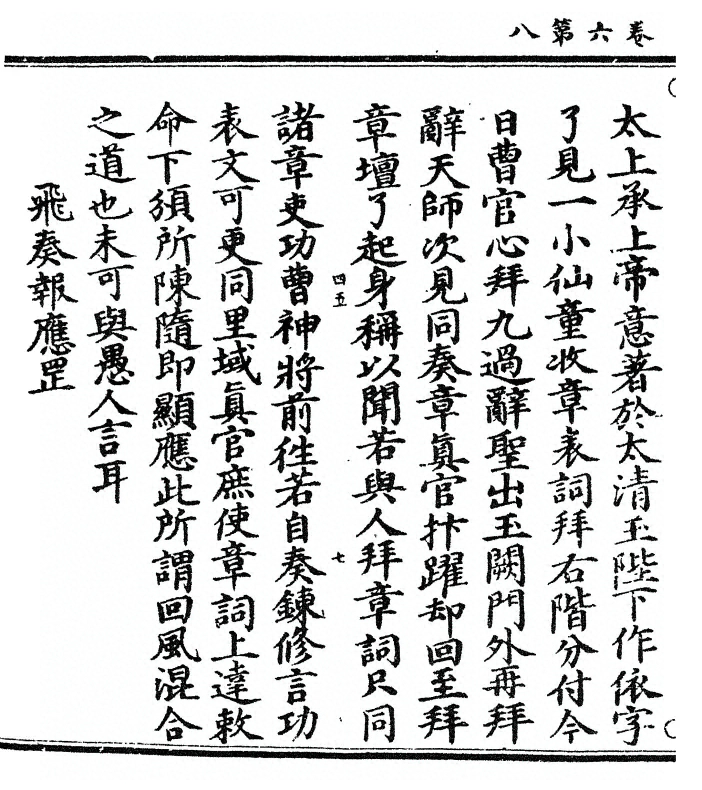 卷六第八
太上承上帝意著於太清玉陛下作依字
了見一小仙童收章表詞拜右階分付今
日曹官心拜九過辭聖出玉闕門外再拜
辭天師次見同奏章眞官抃躍却回至拜
章壇了起身稱以聞若與人拜章詞只同
四五
七
諸章吏功曹神將前徃若自奏鍊修言功
表文可更同里域眞官庶使章詞上達敕
命下須所陳隨即顯應此所謂回風混合
之道也未可與愚人言耳
飛奏報應罡